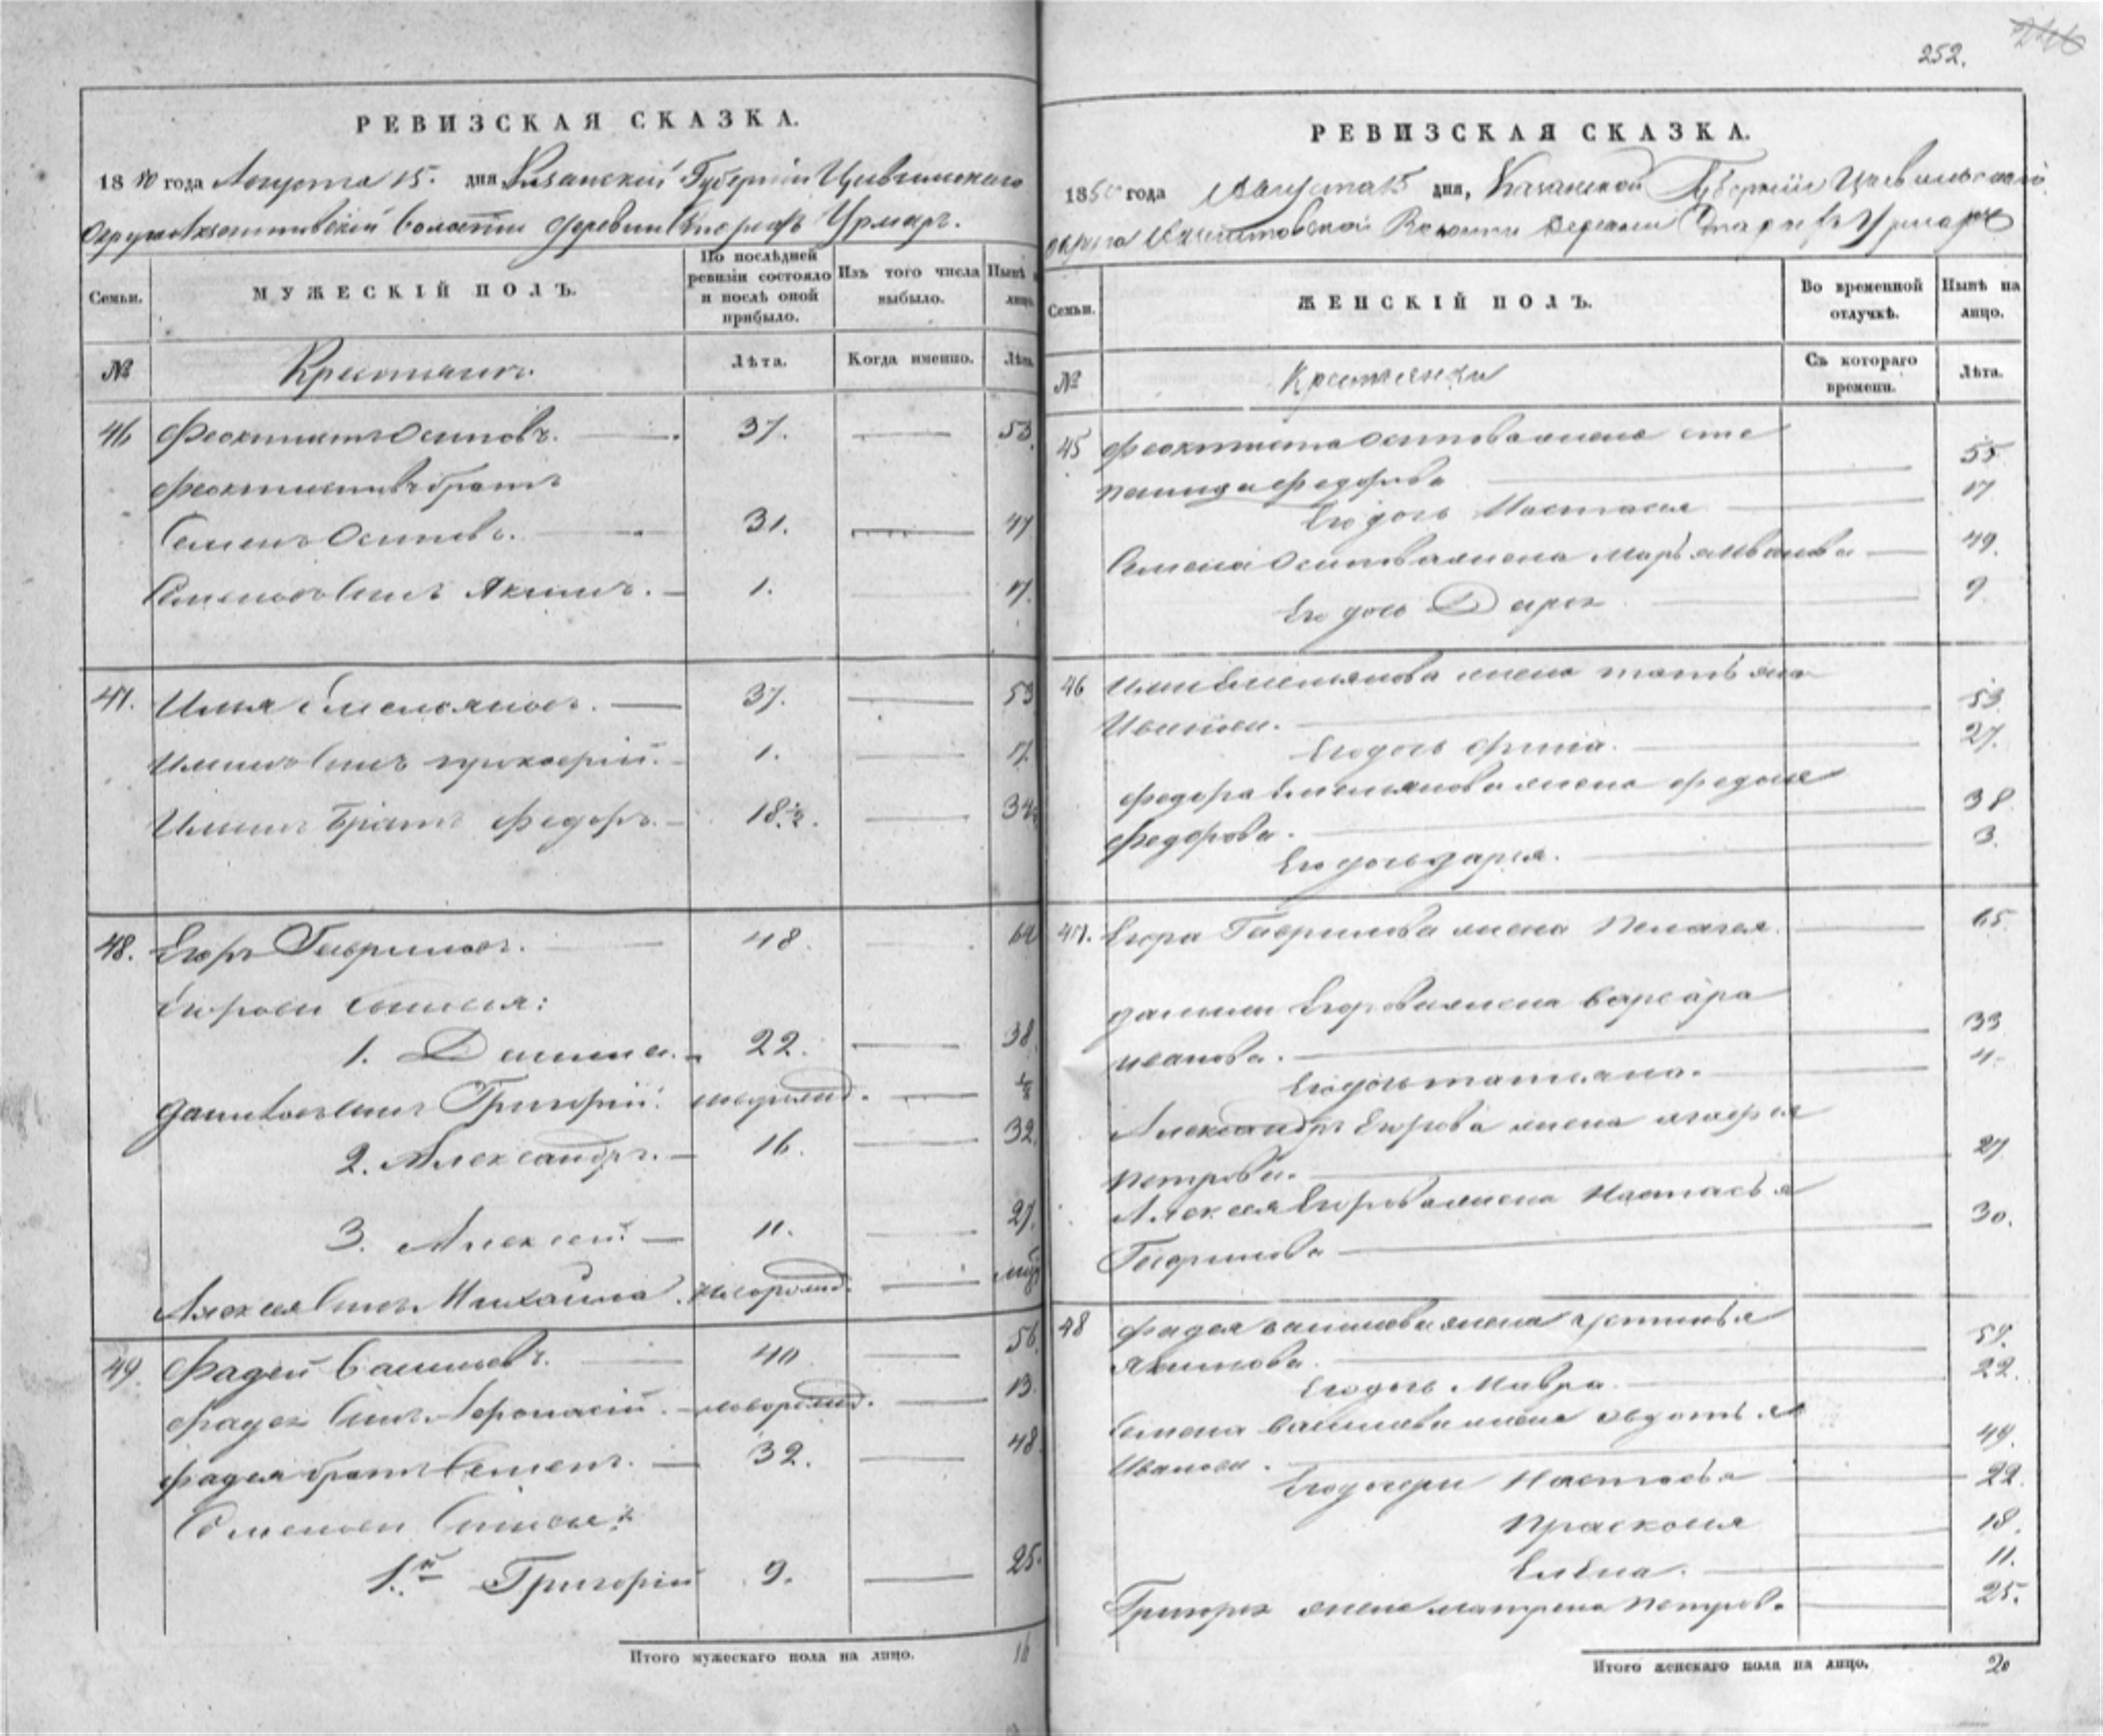 РЕВИЗСКАЯ СКАЗКА.
1850 года Августа 15. дня Казанской Губернiи Цивильскаго
Округа волости деревни Старыхъ Урмаръ.
Семьи.
МУЖЕСКІЙ ПОЛЪ.
По послѣдней ревизіи состояло и послѣ оной прибыло.
Изъ того числа выбыло.
Нынѣ на лицо.
№
Крестьяне.
Лѣта.
Когда именно.
Лѣта.
46 Феоктистъ Осиповъ. 37. 53
Феоктистовъ братъ
Семенъ Осиповъ. 31. 47
Семеновъ сынъ Якимъ. 1. 17.
47. Илья Емельяновъ. 37. 53
Ильинъ сынъ Прокофій. 1. 17.
Ильинъ братъ Федоръ. 18½. 34½
48. Егоръ Гавриловъ. 48. 64
Егоровы сыновья:
1. Данила. 22. 38.
Даниловъ сынъ Григорій. новорожд. ½
2. Александръ. 16. 32.
3. Алексей. 11. 27.
Алексея сынъ Михайла. новорожд.
49. Фадей Васильевъ. 40 56.
Фадея сынъ Афонасій. новорожд. 13.
Фадея братъ Семенъ. 32. 48.
Семеновы сыновья:
1.й Григорій 9. 25.
Итого мужескаго пола на лицо. 16
252.
246
РЕВИЗСКАЯ СКАЗКА.
1850 года Августа 15 дня, Казанской Губерніи Цивильскаго
округа Волости деревни Старыхъ Урмаръ
Семьи.
ЖЕНСКІЙ ПОЛЪ.
Во временной отлучкѣ.
Нынѣ на лицо.
№
Крестьянки
Съ котораго времени.
Лѣта.
45 Феоктиста Осипова жена Сте
панида Федорова 55.
Его дочь Настасья 17
Семена Осипова жена Марья Иванова 49.
Его дочь Дарья 9
46 Ильи Емельянова жена Татьяна
Иванова. 53.
Его дочь 27.
Федора Емельянова жена Федосья
Федорова. 38.
Его дочь Дарья. 3.
47. Егора Гаврилова жена Пелагея. 65.
Данилы Егорова жена Варвара
Иванова. 33
Его дочь Татьяна. 4.
Александръ Егорова жена Агафья
Петрова. 27
Алексея Егорова жена Настасья
Гаврилова 30.
48 Фадея Васильева жена Устинья
Якимова.
Его дочь Мавра. 22.
Семена Васильева жена Авдотья
Иванова. 49.
Его дочери Настасья 22.
Прасковья 18.
Елена. 11.
Григорья жена Матрена Петрова 25.
Итого женскаго пола на лицо. 20